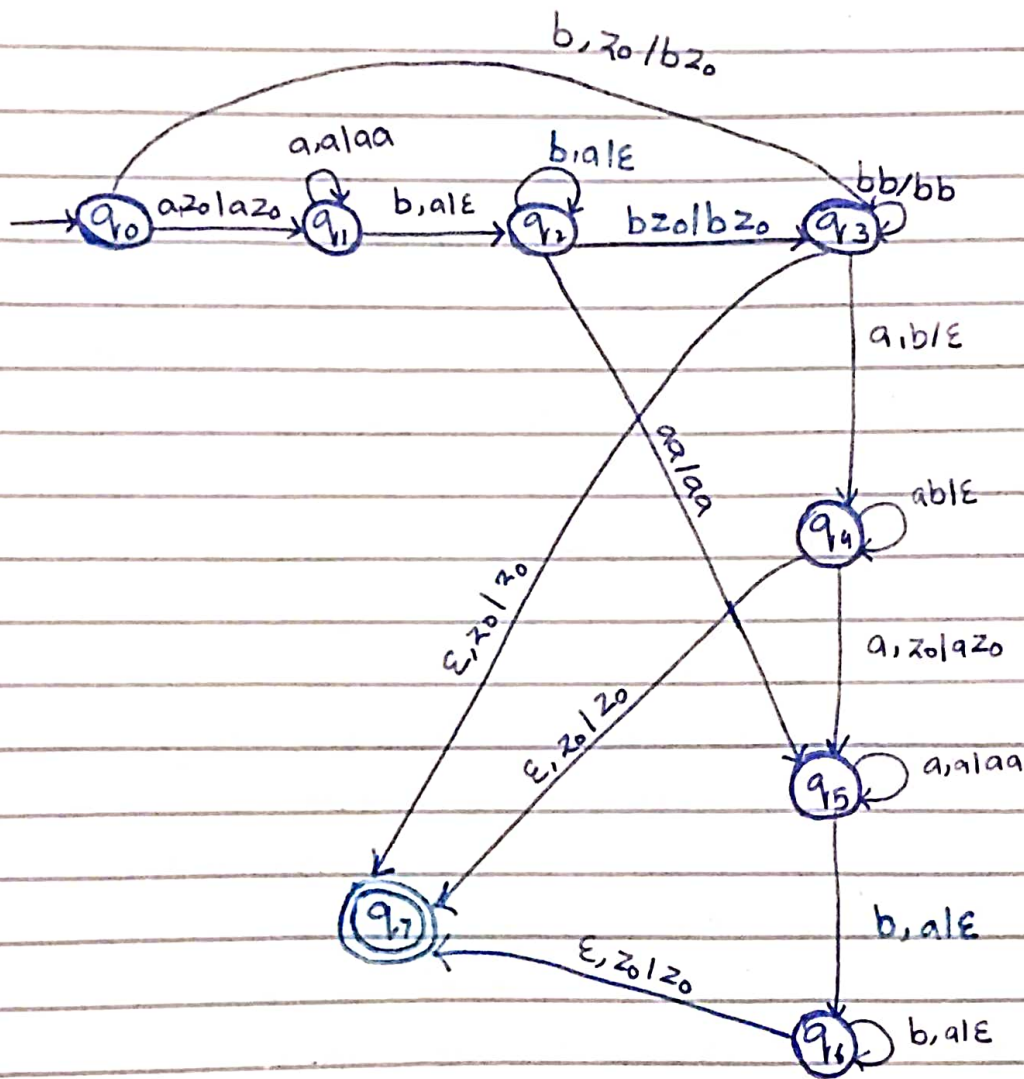 b, z₀/bz₀
a,a|aa
b,a|ε
bb/bb
q₀
az₀|az₀
q₁
b,a|ε
q₂
bz₀|bz₀
q₃
a,b/ε
aa/aa
q₄
ab|ε
ε,z₀|z₀
a,z₀|az₀
ε,z₀|z₀
q₅
a,a|aa
q₇
b,a|ε
ε,z₀|z₀
q₆
b,a|ε